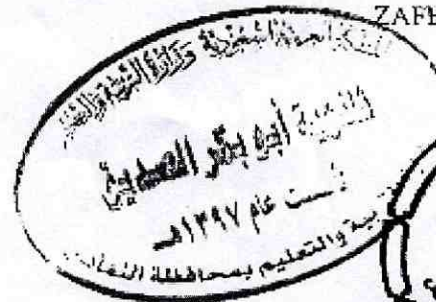 ZAFE
المملكة العربية السعودية وزارة التربية والتعليم
مدرسة أبي بكر الصديق
تأسست عام ١٣٩٧هـ
والتعليم بمحافظة